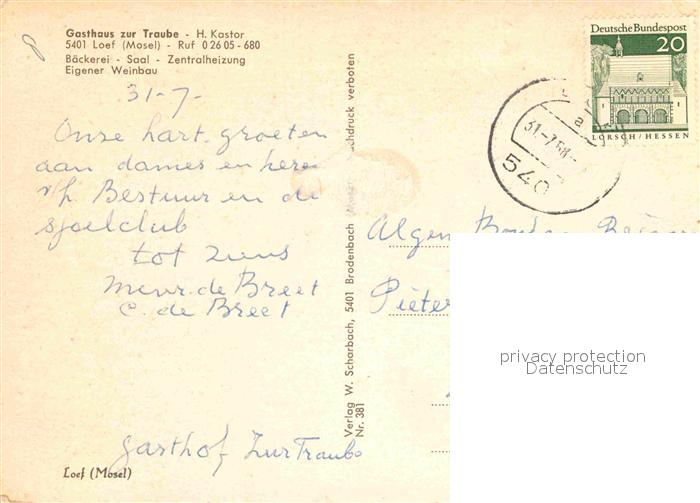 Gasthaus zur Traube - H. Kastor
5401 Loef (Mosel) - Ruf 0 26 05 - 680
Bäckerei - Saal - Zentralheizung
Eigener Weinbau
31-7-
Onze hart. groeten
aan dames en heren
v/h Bestuur en de
sjoelclub
tot ziens
Mevr. de Breet
C. de Breet
Gasthof Zur Traube
Loef (Mosel)
Verlag W. Scharbach, 5401 Brodenbach
chdruck verboten
Nr. 381
Deutsche Bundespost
20
LORSCH/HESSEN
31-7.68
540
a
Algem
Pieter
privacy protection
Datenschutz